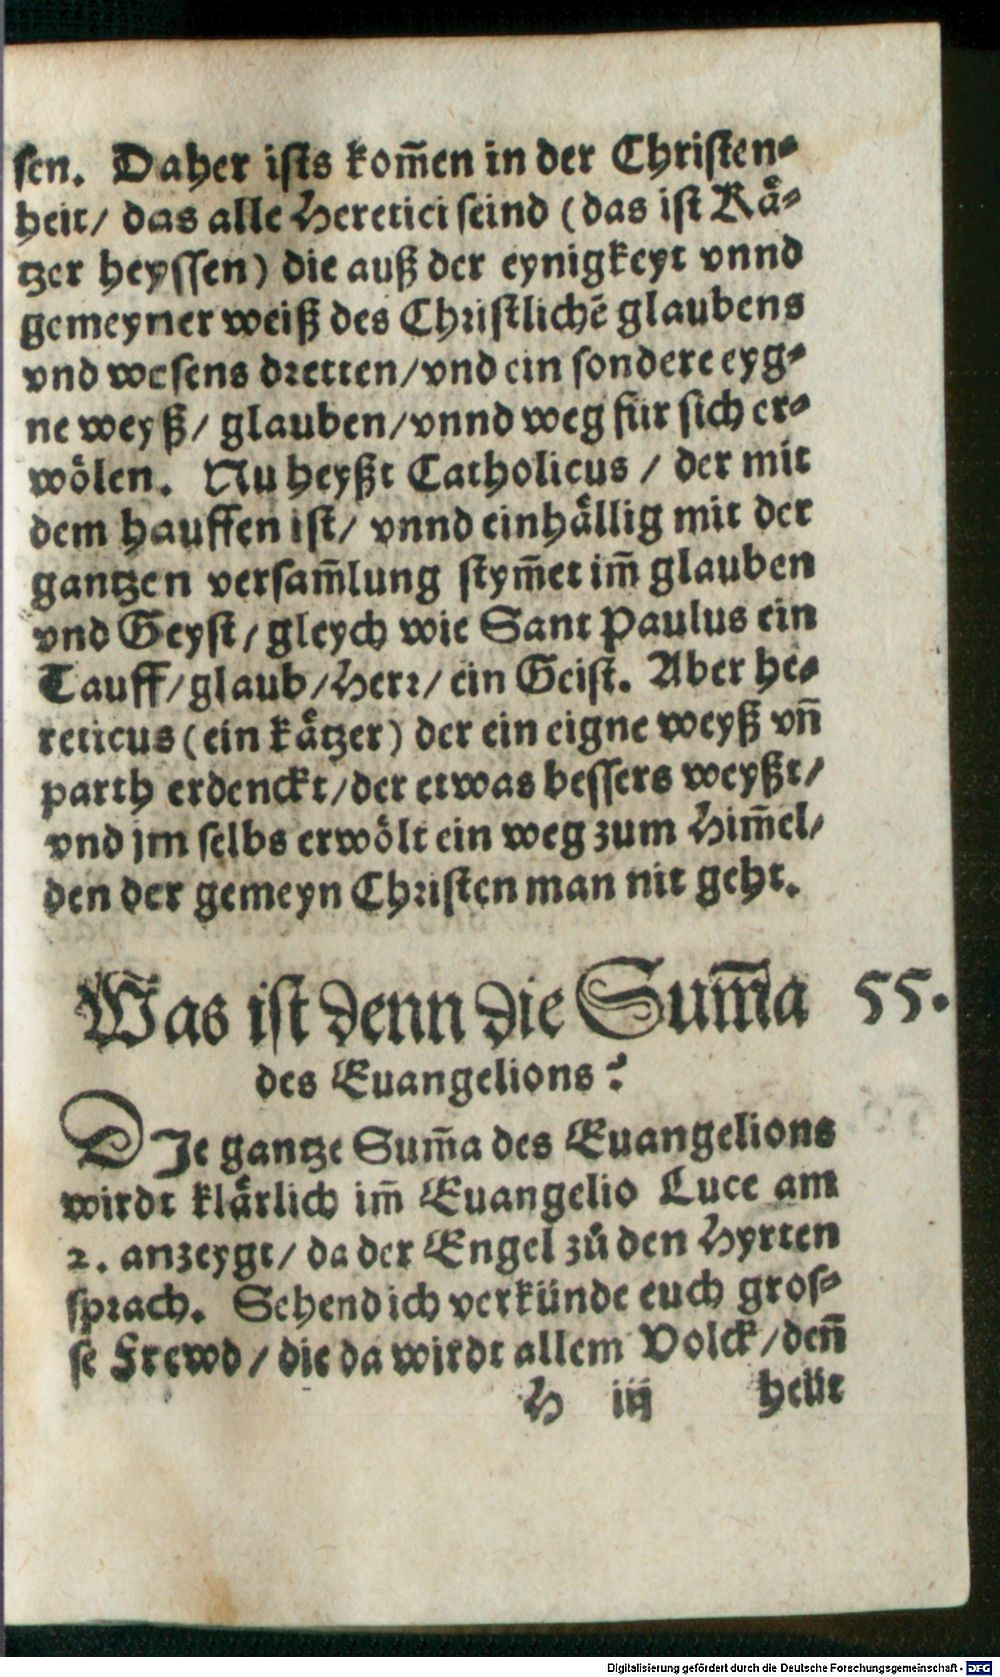 sen. Daher ists kom̃en in der Christen-
heit/ das alle Heretici seind (das ist Kaͤ-
tzer heyssen) die auß der eynigkeyt vnnd
gemeyner weiß des Christlichẽ glaubens
vnd wesens dretten/vnd ein sondere eyg-
ne weyß/ glauben/vnnd weg für sich er-
woͤlen. Nu heyßt Catholicus / der mit
dem hauffen ist/ vnnd einhaͤllig mit der
gantzen versam̃lung stym̃et im̃ glauben
vnd Geyst/gleych wie Sant Paulus ein
Tauff/glaub/Herr/ ein Geist. Aber he-
reticus (ein kaͤtzer) der ein eigne weyß vñ
parth erdenckt/der etwas bessers weyßt/
vnd jm selbs erwoͤlt ein weg zum Him̃el/
den der gemeyn Christen man nit geht.
Was ist denn die Sum̃a 55.
des Euangelions?
DJe gantze Sum̃a des Euangelions
wirdt klaͤrlich im̃ Euangelio Luce am
2. anzeygt/ da der Engel zuͦ den Hyrten
sprach. Sehend ich verkünde euch gros-
se Frewd/die da wirdt allem Volck/deñ
H iij heüt
Digitalisierung gefördert durch die Deutsche Forschungsgemeinschaft - DFG